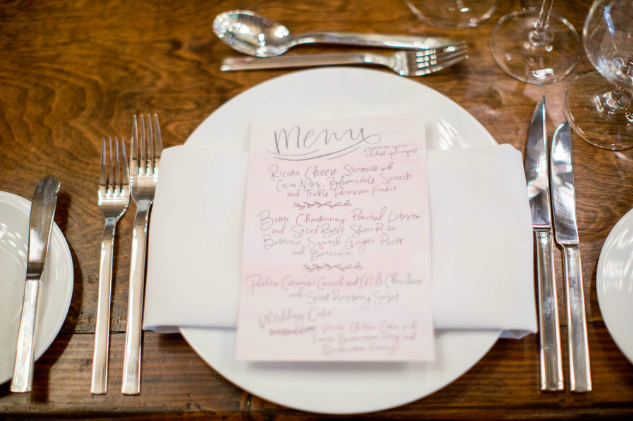 Menu
Ricotta Cheese with
Cocoa Nibs, Bloomsdale Spinach
and Truffle Parmesan Fondue
Butter Chardonnay Poached Lobster
and Spiced Beef Short Ribs
Butternut Squash Ginger Puree
and Broccolini
Praline Caramel Crunch and Milk Chocolate
with Spiced Raspberry
Wedding Cake
Vanilla Chiffon Cake with
Lemon Buttercream Filling and
Buttercream